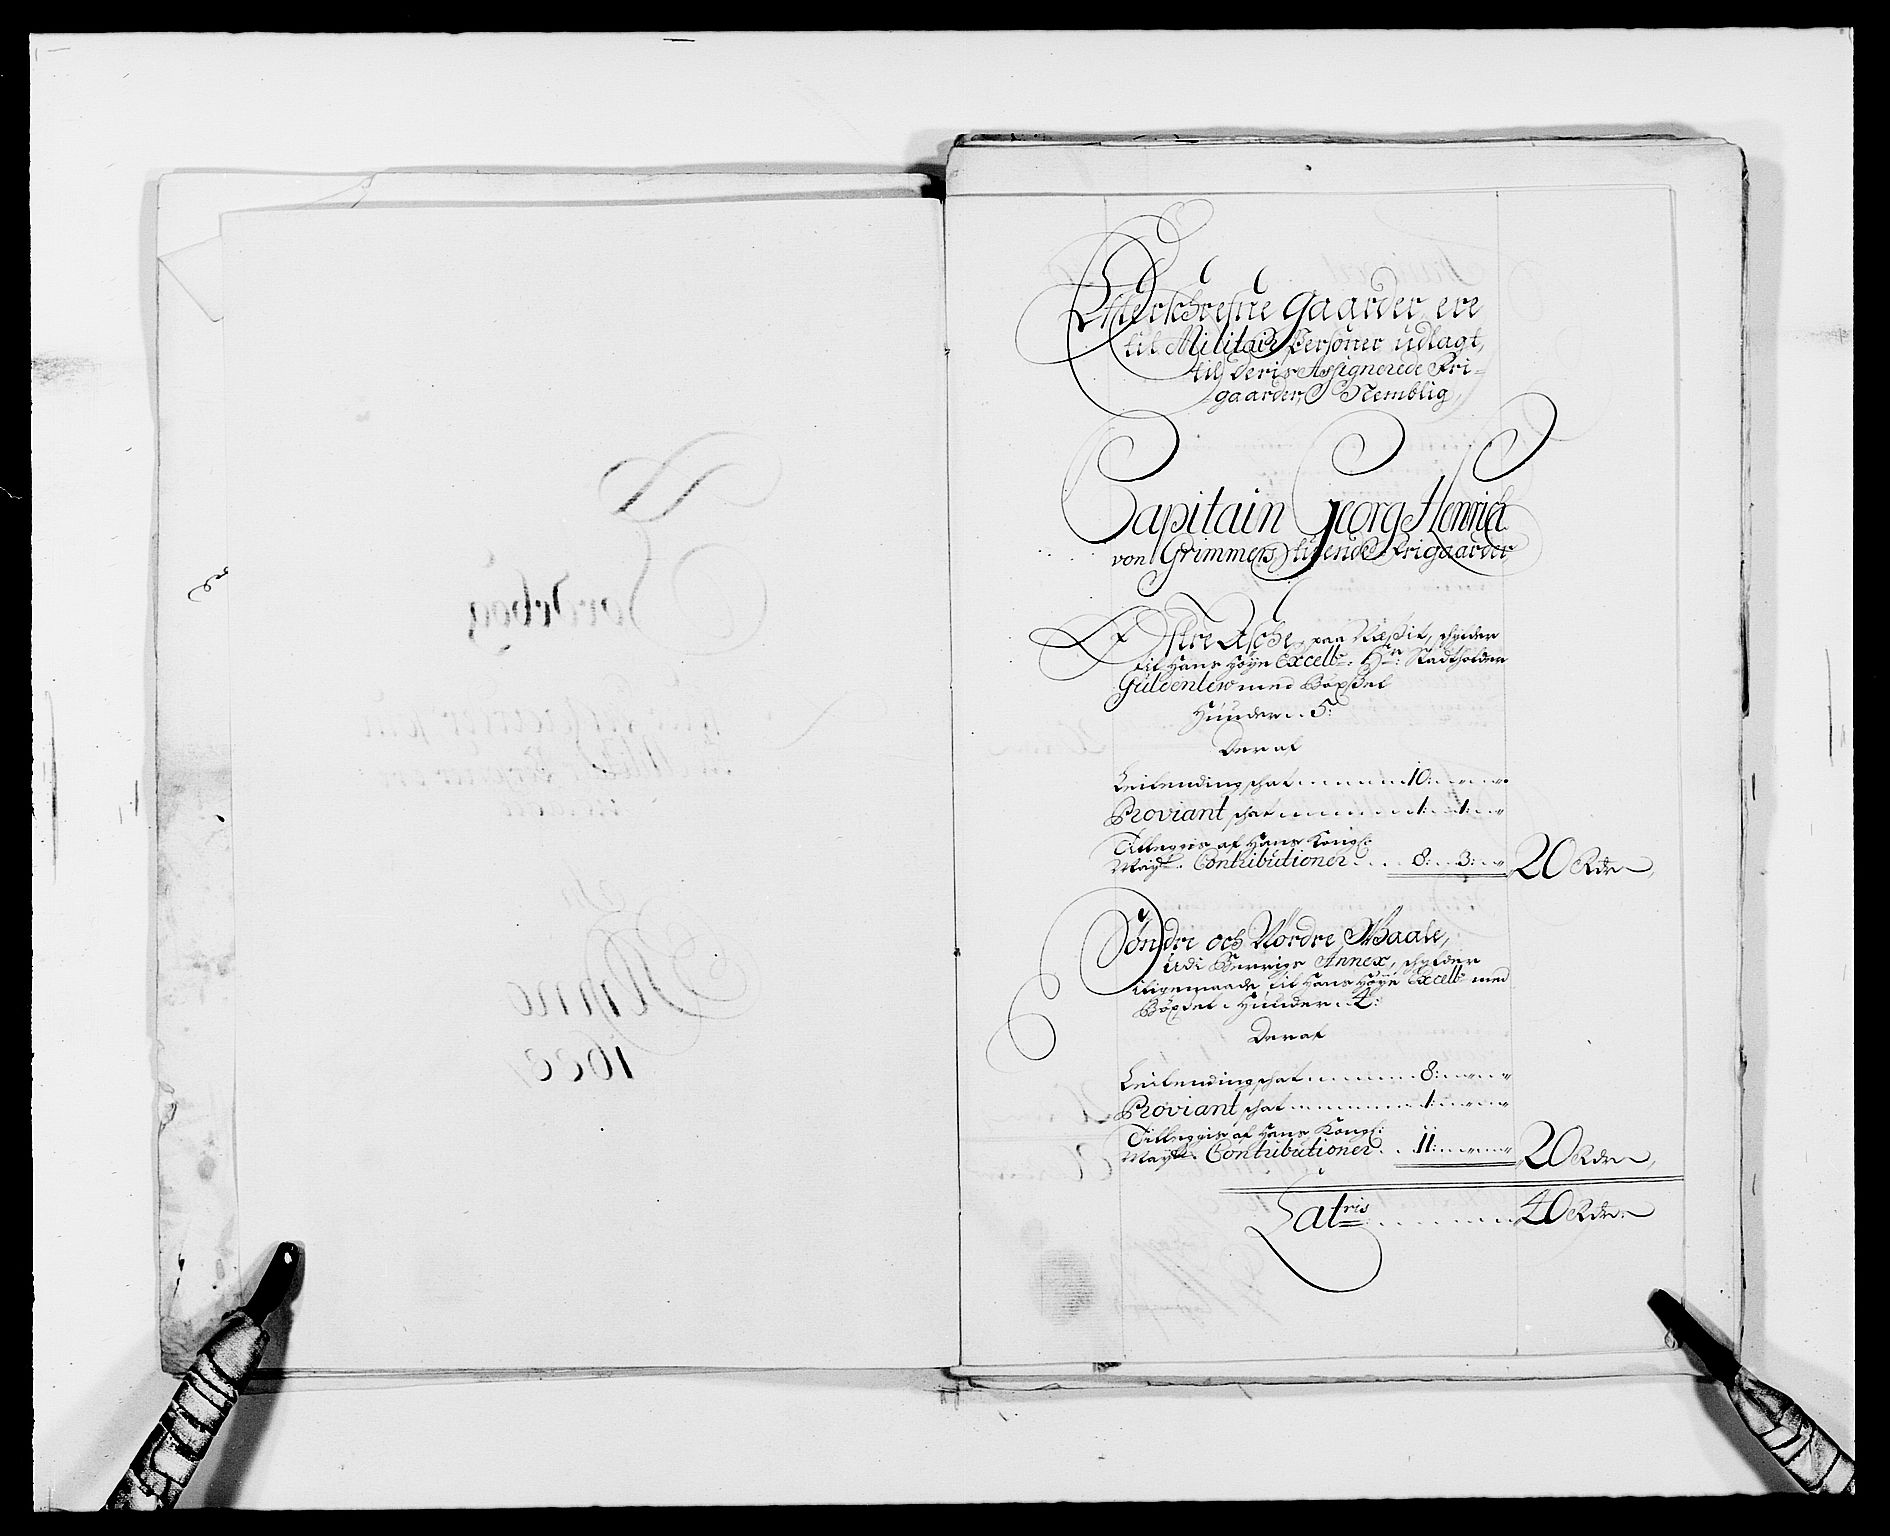 Efterschrefne Gaarder, ere
til Militair Persohner udlagt,
til deris Assignerede Fri-
gaarder, Nemblig,
Capitain Georg Henrich
von Grimmers tillende Frigaarder,
Østre Asche, paa, schylder
til Hans Höye Excell: Hr: Stadtholder
Güldenlew med Böxsel
Hünder .. 5:
Deraf
Leilendingschat 10:
Proviant schat 1: 1:
Tilleggis af Hans Kongl:
Mayts: Contributioner 8: 3: 20 Rdr
Söndre och Nordre Baale,
Udi Berrigs Annex, schylder
iligemaade til Hans Höye Excell: med
Böxsel Hünder .. 4:
Deraf
Leilendingschat 8:
Proviant schat 1:
Tilleggis af Hans Kongl:
Mayts: Contributioner 11: 20 Rdr
Latris 40 Rdr